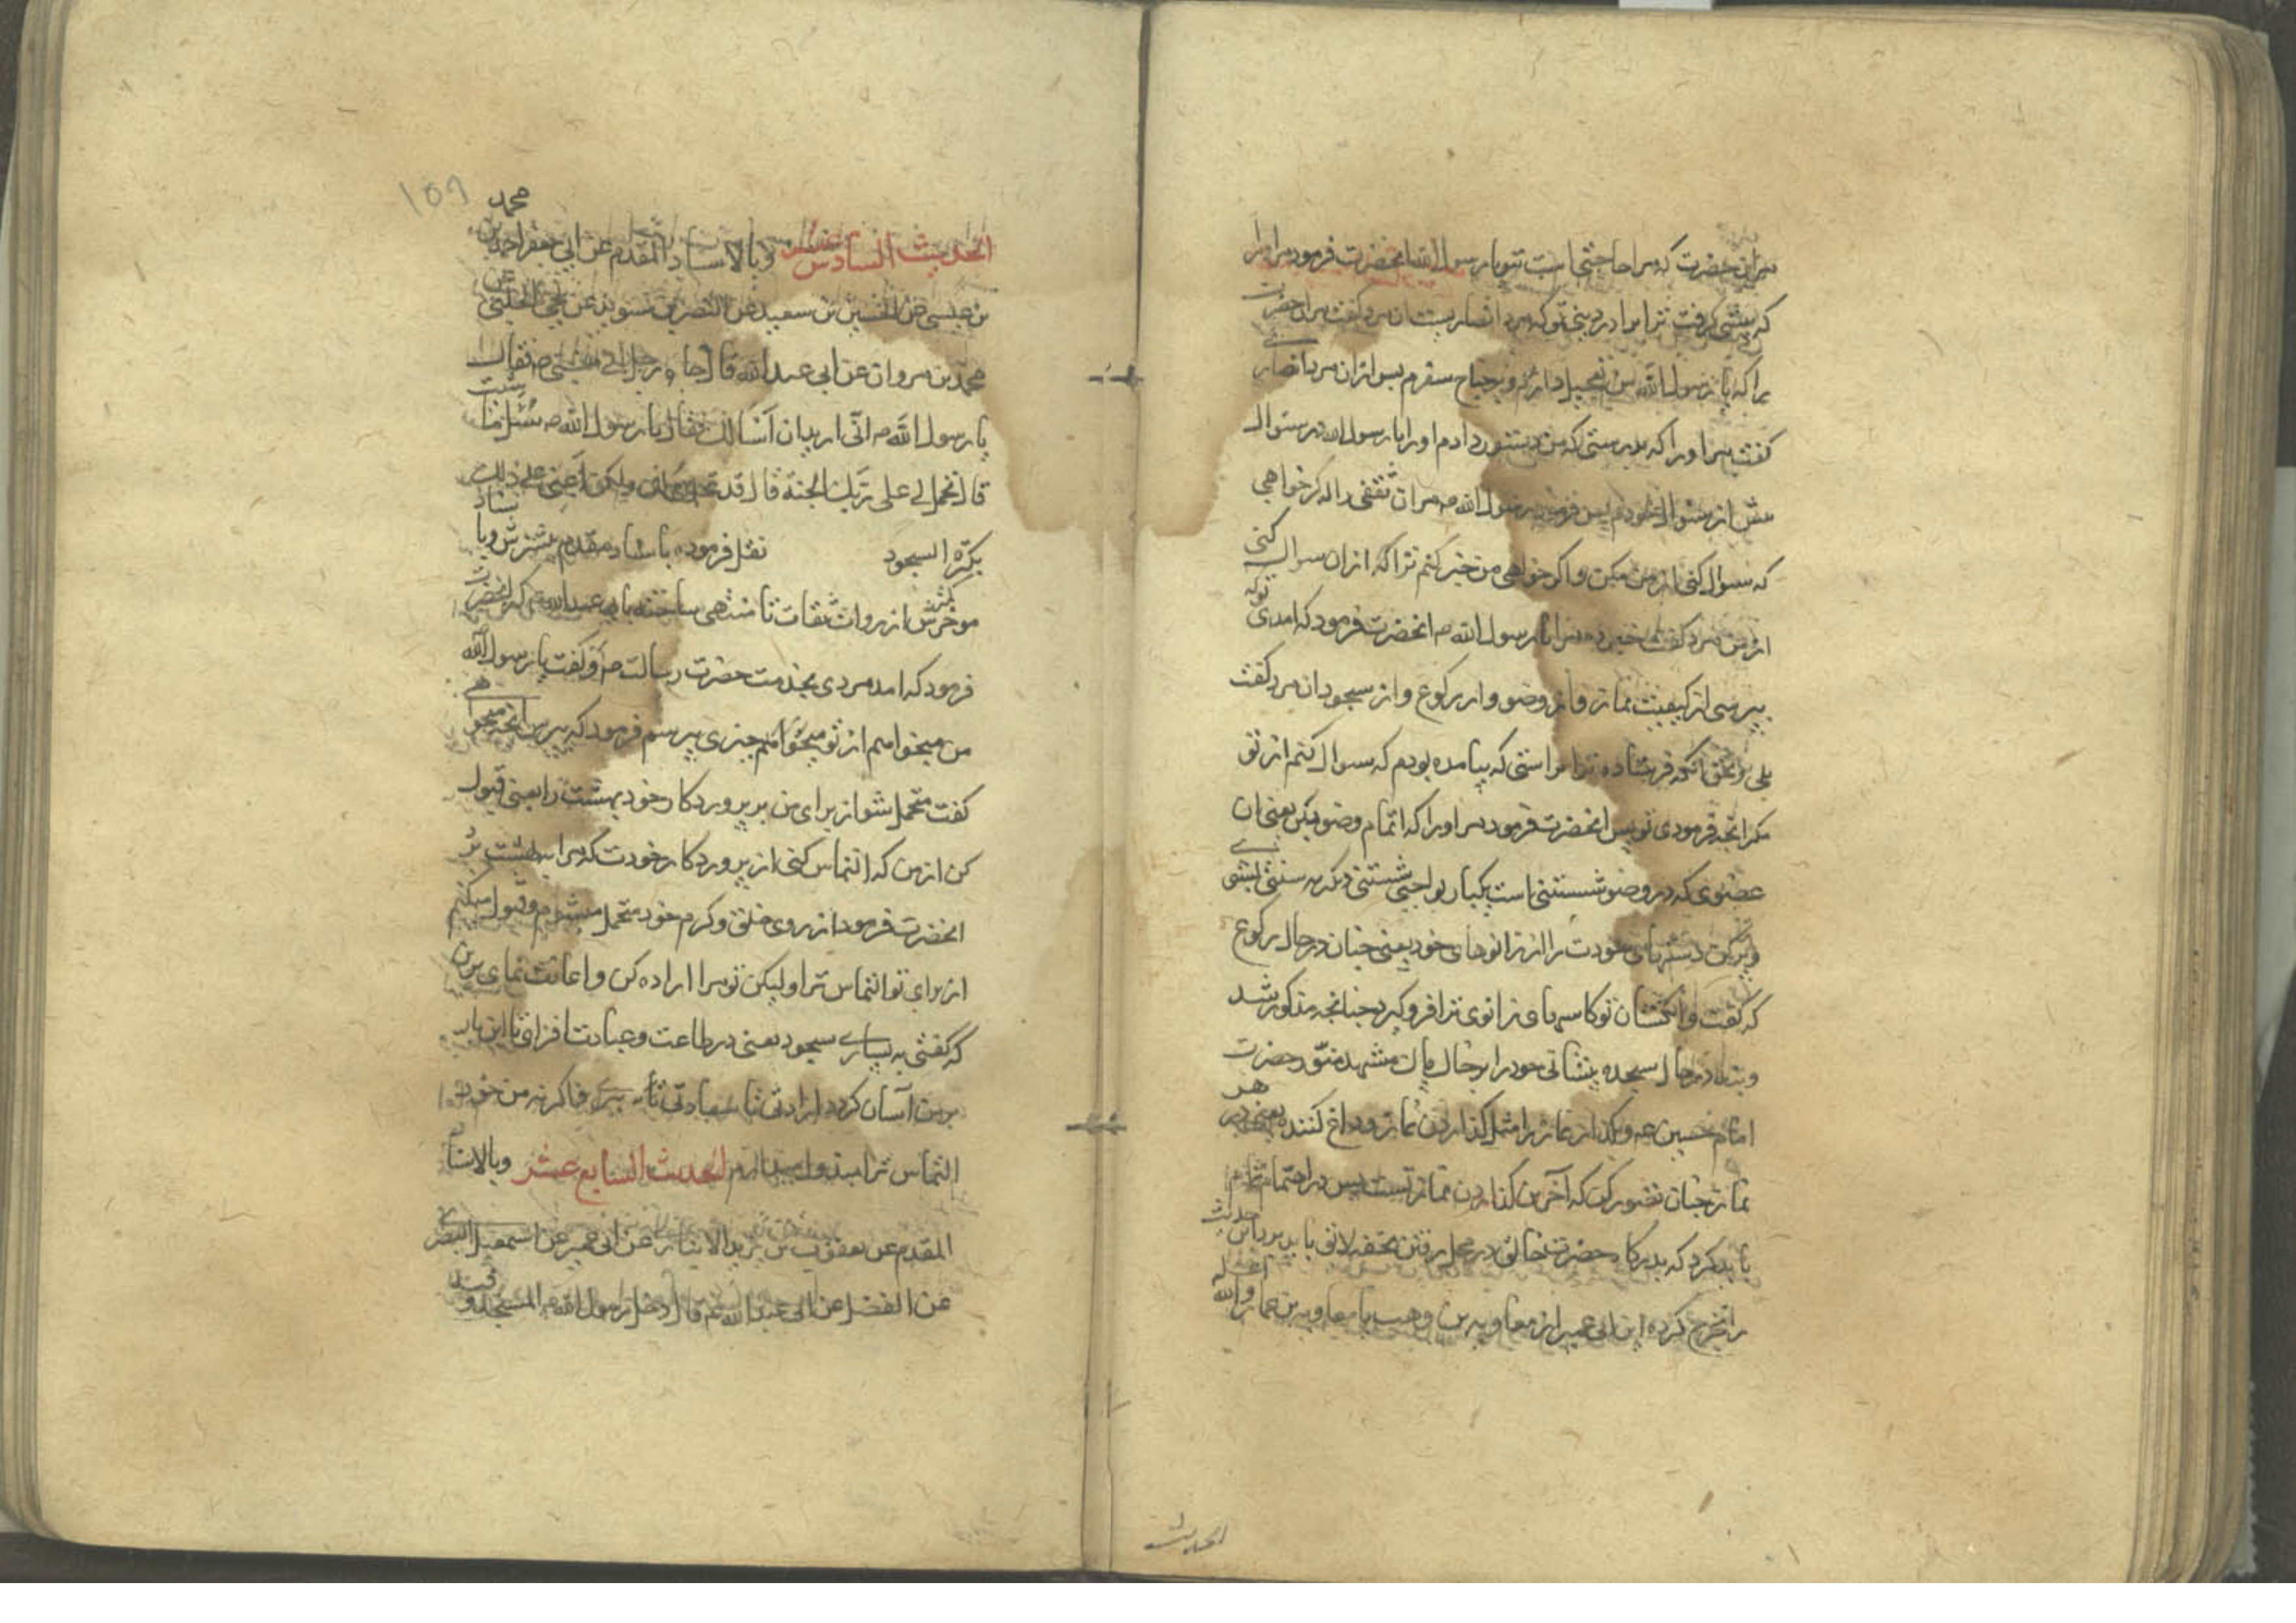 مران حضرت که مرا حاجتی است بتو یا رسول الله انحضرت فرمود مر او را
که پیشی کرفت ترا برادر دینی تو که مرد انصاریست ان مرد کفت مران حضرت
را که یا رسول الله من تعجیل دارم و بر جناح سفرم پس ازان مرد انصاری
کفت مر او را که بدرستی که من دستور دادم او را یا رسول الله در سئوال
پیش از سئوال خودم پس فرمود رسول الله ص مران ثقفی را که اکر خواهی
که سوال کنی از من بکن و اکر خواهی من خبر کنم ترا که ازان سوال کنی
از من مرد کفت خبر ده مرا یا رسول الله ص انحضرت فرمود که امدی توکه
بپرسی از کیفیت نماز و از وضو و از رکوع و از سجود ان مرد کفت
بلی بحق انکه فرستاده ترا براستی که نیامده بودم که سوال کنم از تو
مکر انچه فرمودی تو پس انحضرت فرمود مر او را که اتمام وضو بکن یعنی ان
عضوی که در وضو شستنی است یکبار بواجبی شستنی دیکر به سنتی بشوی
و پر کن دستهای خودت را از زانوهای خود یعنی چنان در حال رکوع
که کفت و انکشتان تو کاسه های زانوی ترا فرو کیرد چنانچه مذکور شد
و در حال سجده پیشانی خود را بر خاک پاک مشهد منور حضرت
امام حسین ع و بکذار نماز را مثل کذاردن نماز وداع کننده یعنی در هر
نماز چنان تصور کن که آخرین کذاردن نماز تست پس در اهتمام تمام
باید کرد که بدرکاه حضرت خالق در محل رفتن تحفه لایق باید برد این حدیث
را تخریج کرده ابن ابی عمیر از معاویه بن وهب یا معاویه بن عمار والله اعلم
الحدیث
۱۵۹
الحدیث السادس عشر وبالاسناد المقدم عن ابی جعفر احمد بن محمد
بن عیسی عن الحسین بن سعید عن النضر بن سوید عن یحیی الحلبی عن
محمد بن مروان عن ابی عبدالله قال جاء رجل الی النبی ص فقال
یا رسول الله ص انی ارید ان اسالک فقال یا رسول الله ص سئل ما شئت
قال تحمل لی علی ربک الجنة قال قد تحملت لک ولکن اعنی علی ذلک
بکثرة السجود نقل فرموده باسناد مقدم بیشترش و باسناد
موخرش از روات ثقات تا منتهی ساخته بابی عبدالله ع که انحضرت
فرمود که امد مردی بخدمت حضرت رسالت ص و کفت یا رسول الله
من میخواهم از تو میخواهم چیزی بپرسم فرمود که بپرس انچه میخواهی
کفت متحمل شو از برای من بر پروردکار خود بهشت را یعنی قبول
کن از من که التماس کنی از پروردکار خودت که مرا بهشت برد
انحضرت فرمود از روی خلق و کرم خود متحمل میشوم و قبول میکنم
از برای تو التماس ترا و لیکن تو مرا اراده کن و اعانت نمای برین
که کفتی به بسیاری سجود یعنی در طاعت و عبادت افزای تا این بار
بر من آسان کردد
التماس ترا الحدیث السابع عشر وبالاسناد
المقدم عن یعقوب بن یزید الانباری عن ابی عمیر عن اسمعیل البصری
عن الفضل عن ابی عبدالله ع قال دخل رسول الله ص المسجد و فیه